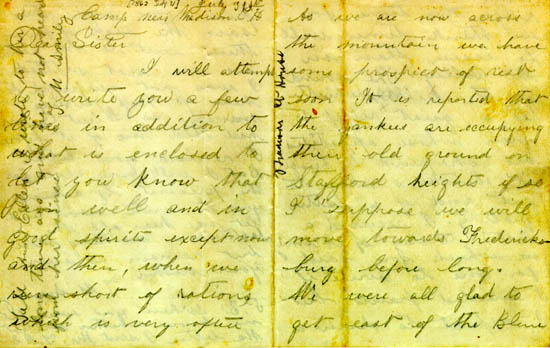 Camp near Madison C. H.
July 31st
Dear Sister
I will attempt
write you a few
lines in addition to
what is enclosed to
let you know that
I am well and in
good spirits except now
and then, when we
run short of rations
which is very often
As we are now across
the mountain we have
some prospect of rest
soon It is reported that
the yankees are occupying
their old ground on
Stafford heights if so
I suppose we will
move towards Fredericks
burg before long.
We were all glad to
get east of the Blue